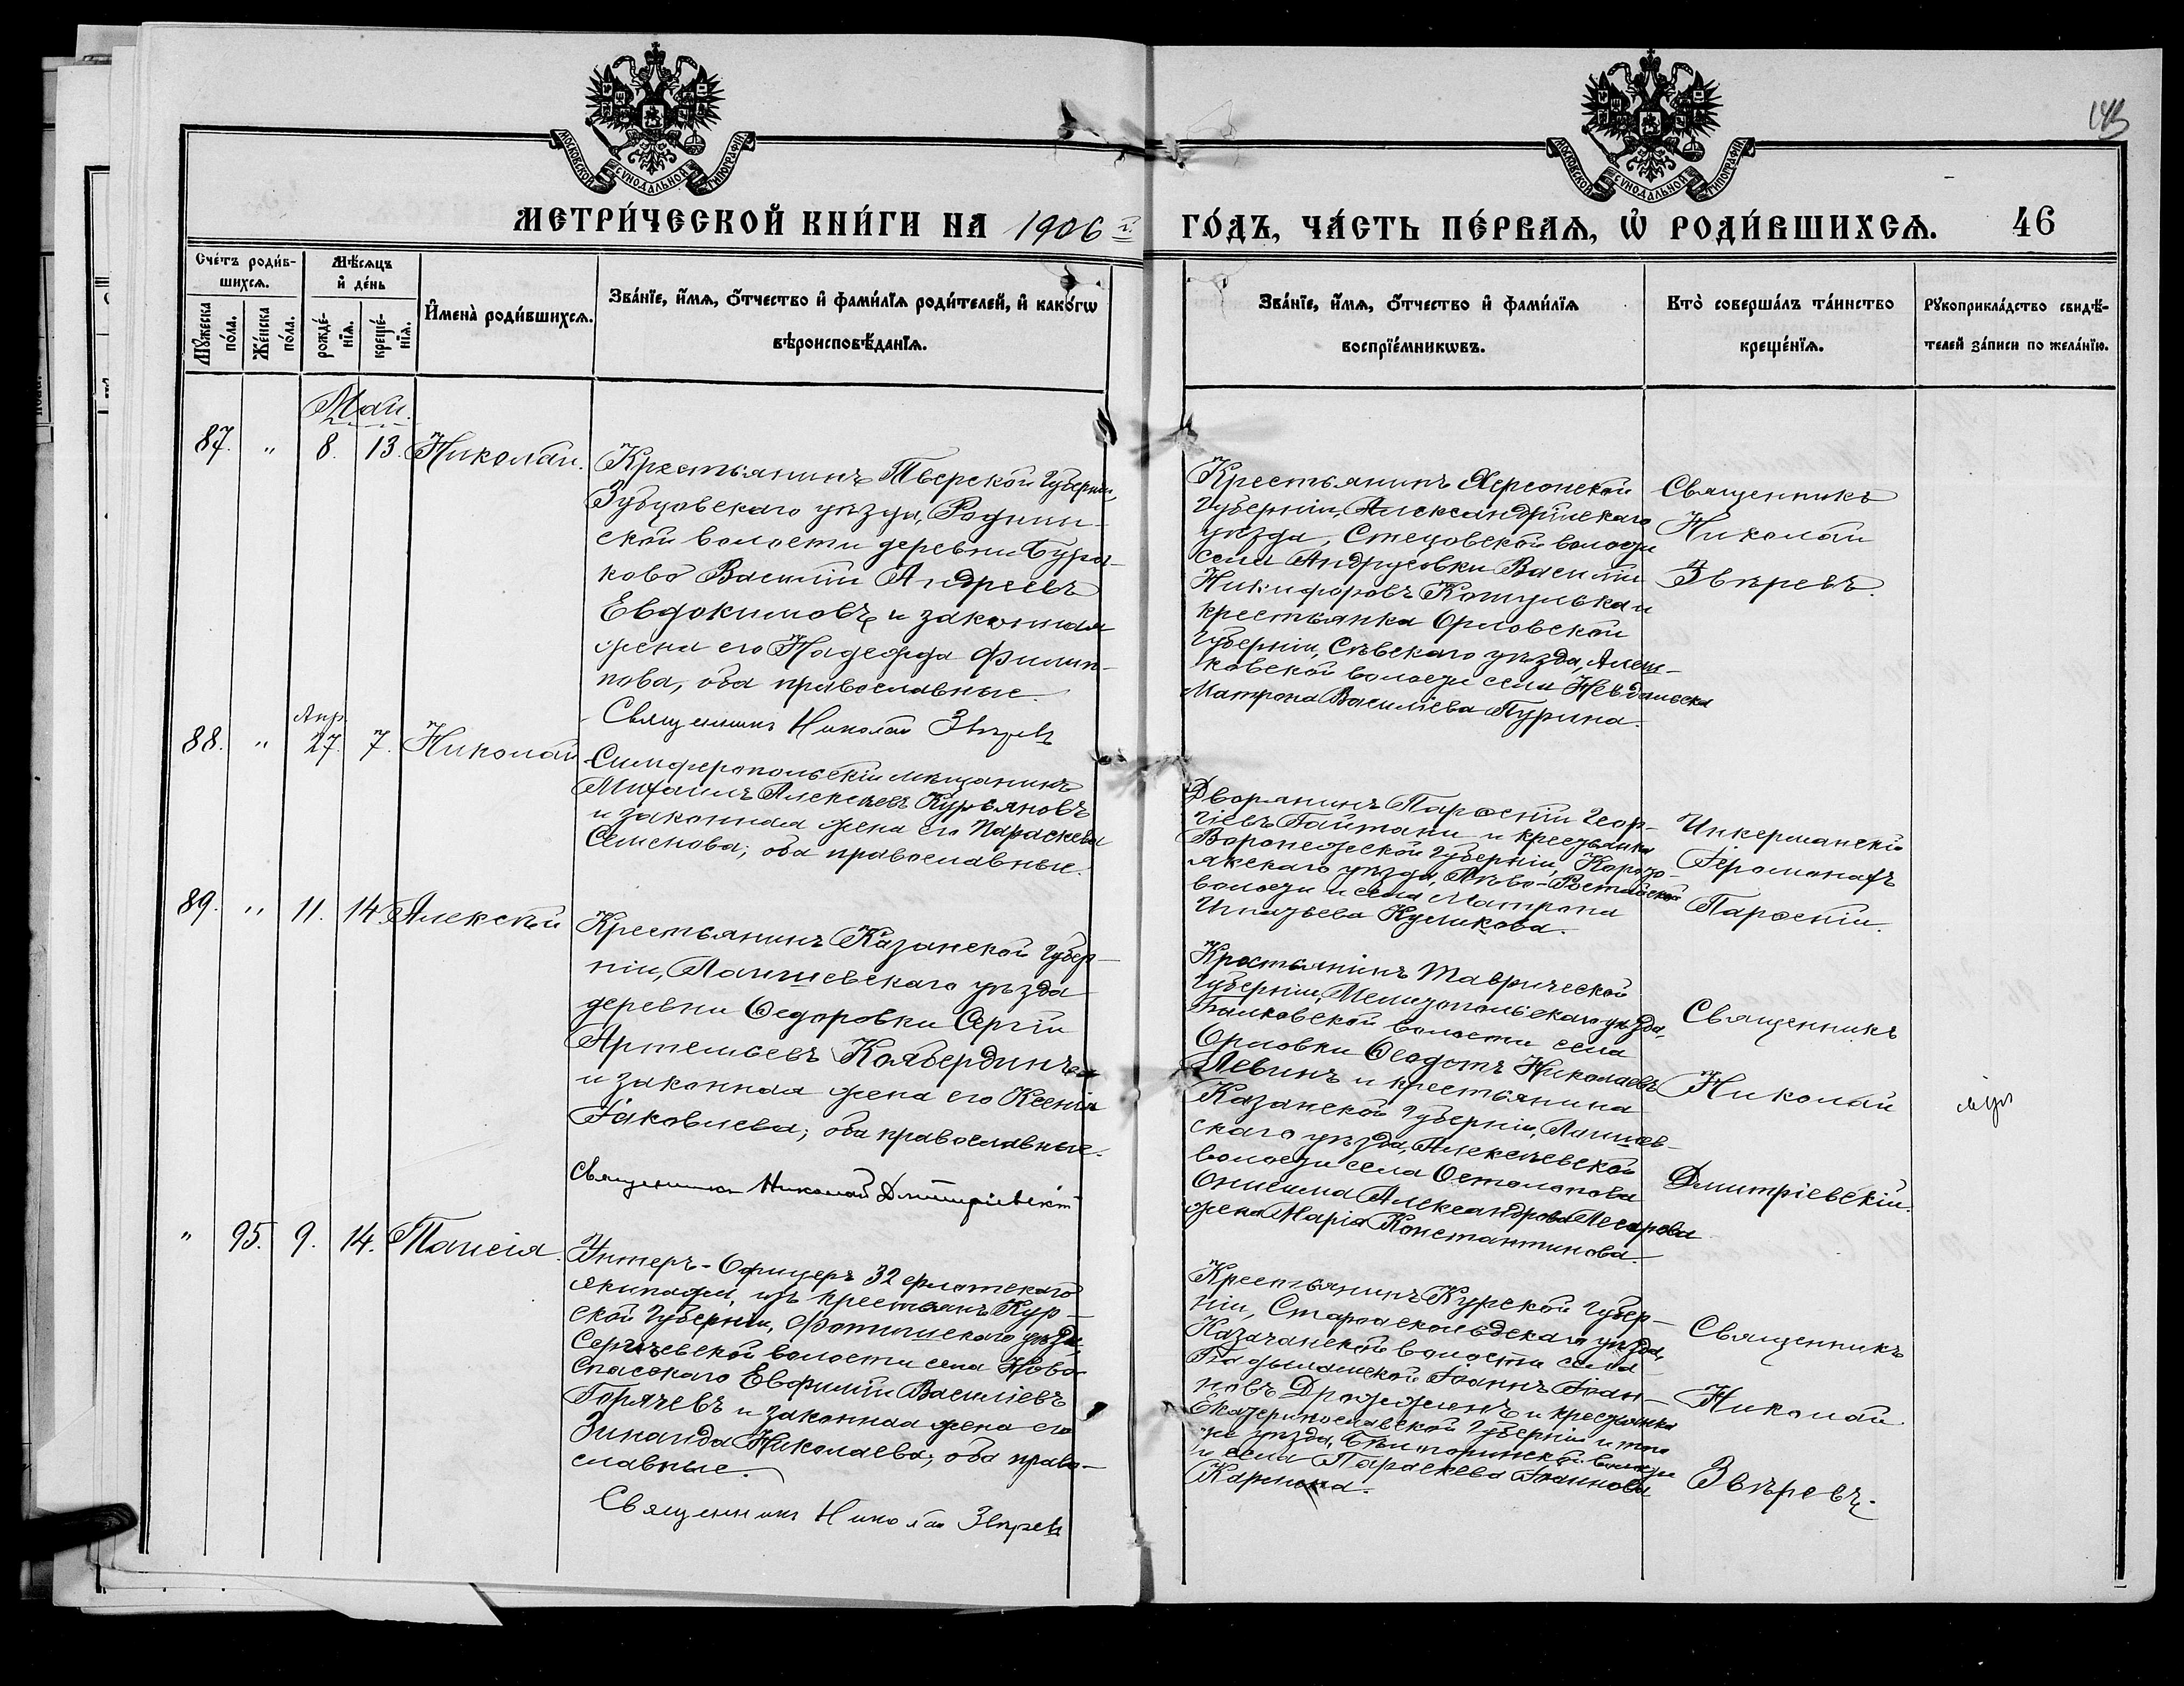 МОСКОВСКОЙ СѴНОДАЛЬНОЙ ТИПОГРАФІИ
МОСКОВСКОЙ СѴНОДАЛЬНОЙ ТИПОГРАФІИ
МЕТРИ́ЧЕСКОЙ КНИ́ГИ НА 1906 г.
ГО́ДЪ, ЧА́СТЬ ПЕ́РВАѦ, Ѡ҆ РОДИ́ВШИХСѦ. 46
Сче́тъ роди́в-
шихсѧ.
Мꙋ́жеска по́ла.
Же́нска по́ла.
Мѣ́сѧцъ и҆ де́нь
рожде́-нїѧ.
креще́-нїѧ.
И҆мена̀ роди́вшихсѧ.
Зва́нїе, и҆́мѧ, ѻ҆́тчество и҆ фами́лїѧ роди́телей, и҆ како́гѡ
вѣроисповѣ́данїѧ.
Зва́нїе, и҆́мѧ, ѻ҆́тчество и҆ фами́лїѧ
воспрїе́мникѡвъ.
Кто̀ соверша́лъ та́инство
креще́нїѧ.
Рꙋкоприкла́дство свидѣ́-
телей за́писи по жела́нїю.
Май.
87. " 8. 13. Николай.
Крестьянинъ Тверской губерніи,
Зубцовскаго уѣзда, Родин-
ской волости деревни Бура-
ково Василій Андреевъ
Евдокимовъ и законная
жена его Надежда Филип-
пова, оба православные.
Священникъ Николай Звѣревъ
Крестьянинъ Херсонской
губерніи, Александрійскаго
уѣзда, Стецовской волости
села Андрусовки Василій
Никифоровъ и
крестьянка Орловской
губерніи, Сѣвскаго уѣзда, Алеш-
ковской волости села
Матрона Василіева Пурина.
Священникъ
Николай
Звѣревъ.
88. " Апр. 27. 7. Николай
Симферопольскій мѣщанинъ
Михаилъ Алексѣевъ Курьяновъ
и законная жена его Параскева
Семенова; оба православные.
Дворянинъ Парѳеній Геор-
гіевъ Гайтани и крестьянка
Воронежской губерніи, Корото-
якскаго уѣзда,
волости и села Матрона
Игнатьева Куликова.
Инкерманскій
Іеромонахъ
Парѳеній.
89. " 11. 14. Алексѣй
Крестьянинъ Казанской губер-
ніи, Лаишевскаго уѣзда
деревни Ѳедоровки Сергій
Артемьевъ Колбердинъ
и законная жена его Ксенія
Іаковлева; оба православные.
Священникъ Николай Дмитріевскій
Крестьянинъ Таврической
губерніи, Мелитопольскаго уѣзда,
Балковской волости села
Орловки Ѳеодотъ Николаевъ
Левинъ и крестьянина
Казанской губерніи, Лаишев-
скаго уѣзда, Алексѣевской
волости села Остолопова
Онисима Александрова
жена Марія Константинова.
Священникъ
Николай
Дмитріевскій.
" 95. 9. 14. Таисія.
Унтеръ-Офицеръ 32 флотскаго
экипажа, изъ крестьянъ Кур-
ской губерніи, уѣзда,
Сергѣевской волости села Ново-
спасскаго Евфимій Василіевъ
Горячевъ и законная жена его
Зинаида Николаева; оба право-
славные.
Священникъ Николай Звѣревъ
Крестьянинъ Курской губер-
ніи, Старооскольскаго уѣзда,
Казачанской волости села
Іоаннъ Іоан-
новъ и крестьянка
Екатеринославской губерніи и того
же уѣзда, волости
и села Параскева Іоаннова
Карпова.
Священникъ
Николай
Звѣревъ.